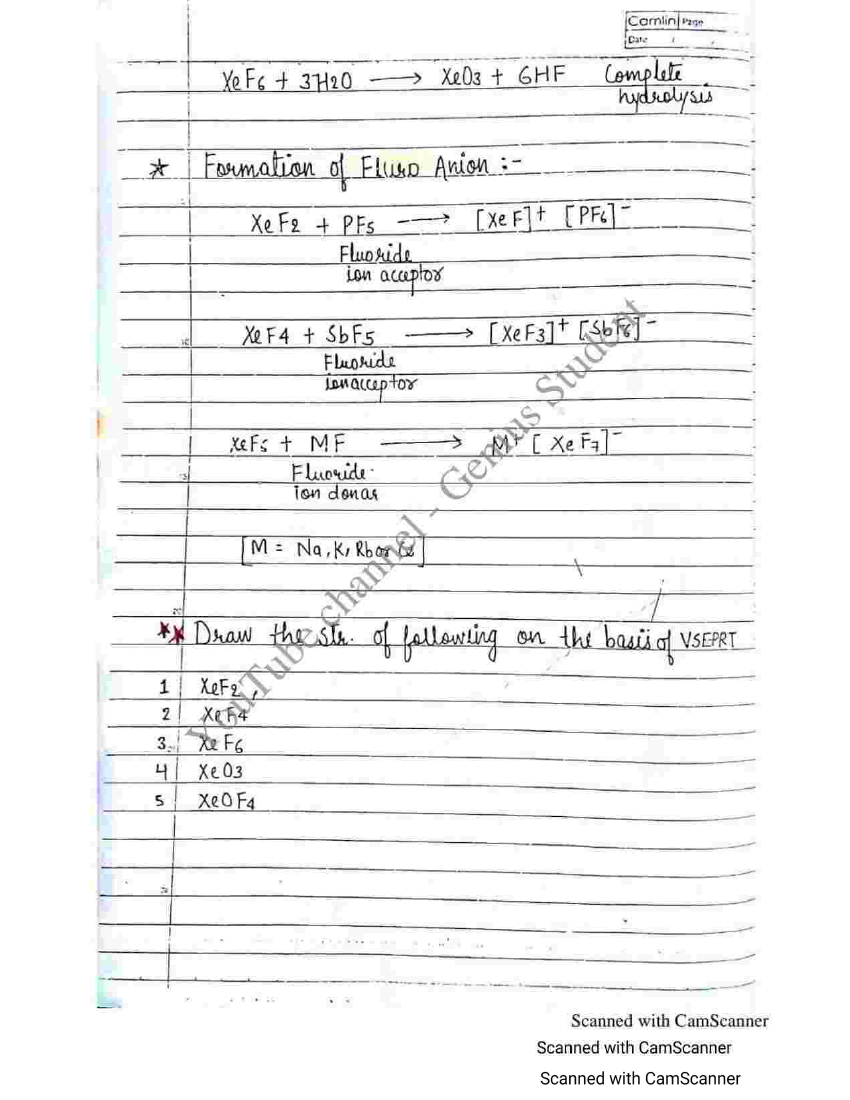 Camlin Page
Date / /
XeF6 + 3H2O ⟶ XeO3 + 6HF Complete
hydrolysis
★ Formation of Fluro Anion :-
XeF2 + PF5 ⟶ [XeF]+ [PF6]-
Fluoride
ion acceptor
XeF4 + SbF5 ⟶ [XeF3]+ [SbF6]-
Fluoride
ion acceptor
XeF5 + MF ⟶ M+ [XeF7]-
Fluoride
ion donar
[M = Na, K, Rb or Cs]
★★ Draw the str. of following on the basis of VSEPRT
1 XeF2,
2 XeF4
3. XeF6
4 XeO3
5 XeOF4
YouTube channel - Genius Student
Scanned with CamScanner
Scanned with CamScanner
Scanned with CamScanner